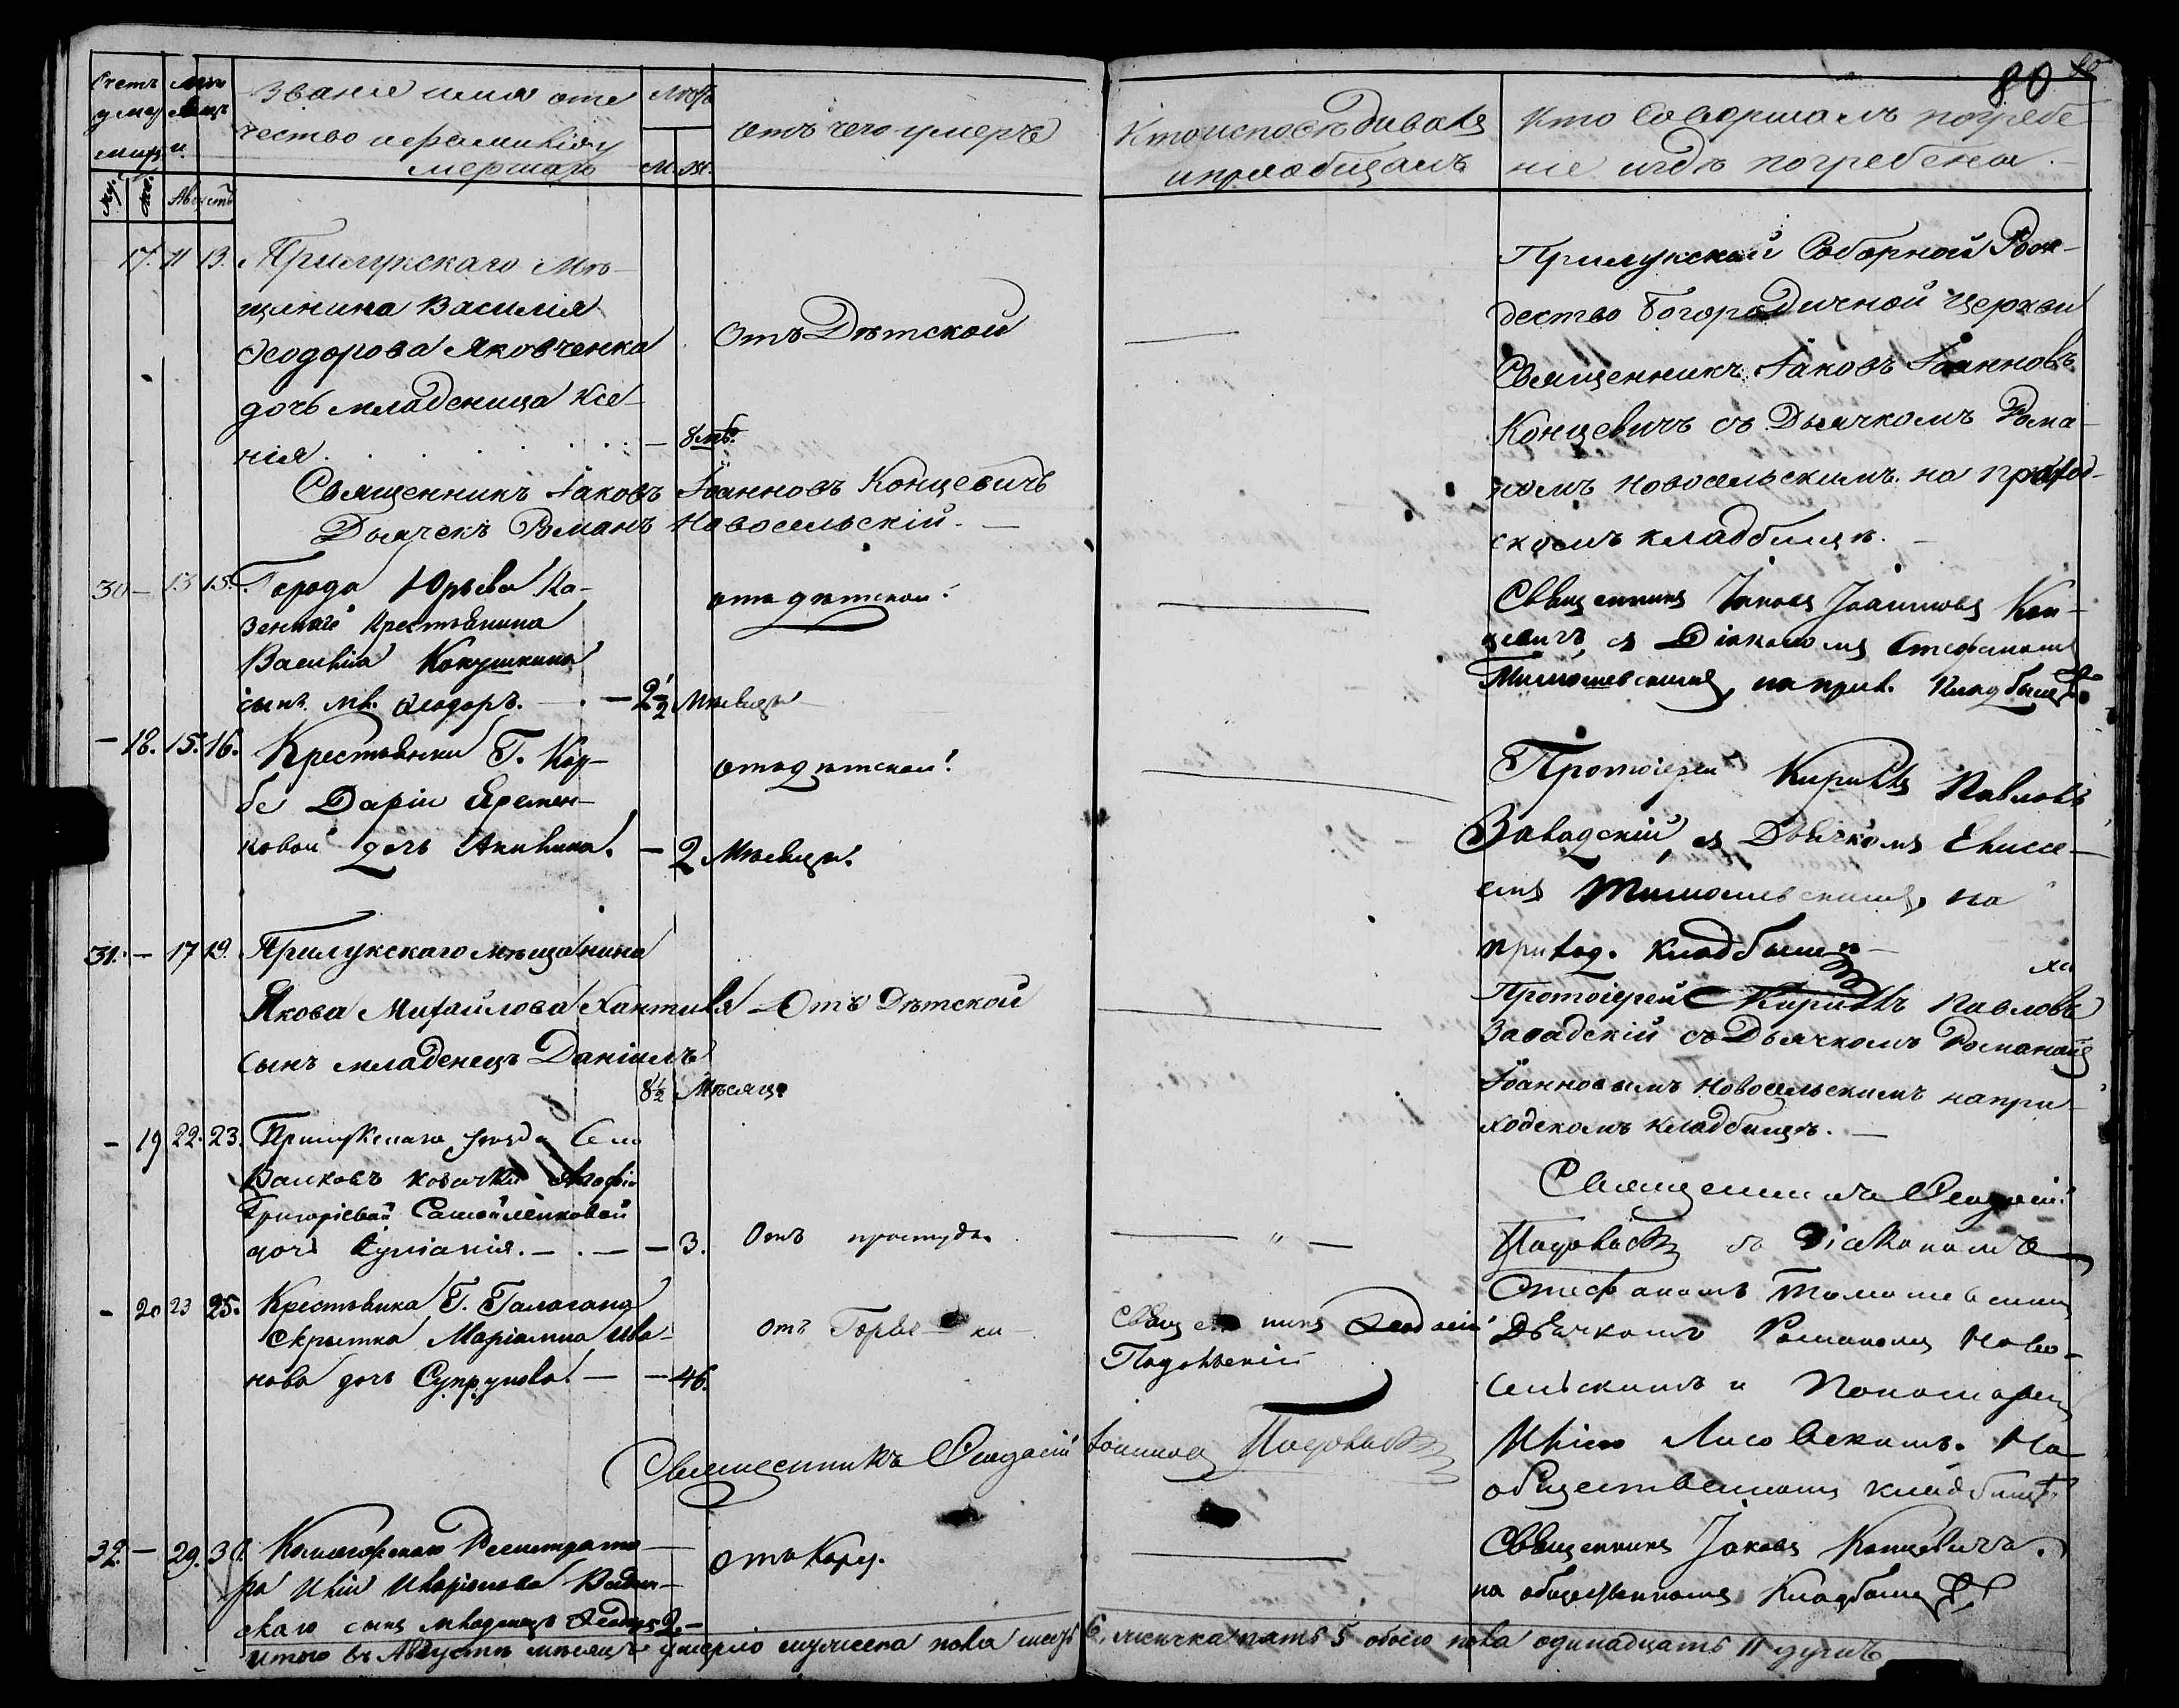 80
Счетъ умер шихъ
Мѣсяцъ
Званіе имя оте
чество и фамилія у
мершаго
Лѣта
м. ж.
отъ чего умеръ
Кто исповѣдивалъ
и пріобщалъ
Кто совершалъ погребе
ніе и гдѣ погребены.
му. же. Августъ
17. 11 13. Прилукскаго Мѣ-
щанина Василія
Ѳеодорова Яковченка
дочь младеница Ксе-
нія. — 8 мѣ.
Отъ Дѣтской
Прилукской Соборной Рож-
дество Богородичной церкви
Священникъ Іаковъ Іоанновъ
Концевичъ съ Дьячкомъ Рома-
номъ Новосельскимъ на приход-
скомъ кладбищѣ.
Священникъ Іаковъ Іоанновъ Концевичъ
Дьячекъ Романъ Новосельскій. —
30 — 13 15. Города Юрьева Ка-
зеннаго Крестьянина
Василія Кокушкина
сынъ мл. Ѳеодоръ. — 2 1/2 Мѣсяцы
отъ дѣтской.
Священникъ Іаковъ Іоанновъ Кон-
цевичъ, съ Діакономъ Стефаномъ
Тимошевскимъ, на прих. Кладбищѣ
— 18. 15. 16. Крестьянки Г. Кор-
бе Даріи Яремен-
ковой дочь Акилина. — 2 Мѣсяцы.
отъ дѣтской.
Протоіерей Кириллъ Павловъ
Завадскій, съ Дьячкомъ Елисе-
емъ Тимошевскимъ, на
приход. Кладбищѣ —
31. — 17 19. Прилукскаго мѣщанина
Якова Михайлова Хантиля
сынъ младенецъ Даніилъ
8 1/2 Мѣсяц.
Отъ Дѣтской
Протоіерей Кириллъ Павловъ
Завадскій съ Дьячкомъ Романомъ
Іоанновымъ Новосельскимъ на при-
ходскомъ кладбищѣ. —
— 19 22. 23. Прилукскаго уѣзда Села
Валковъ козачки Агафіи
Григоріевой Самойленковой
дочь Іуліанія. — — 3.
Отъ простуды
Священникъ Ѳеодосій
Падовскій съ Діакономъ
Стефаномъ Тимошевскимъ
Дьячкомъ Романомъ Ново-
сельскимъ и Пономаремъ
Иліею Лисовскимъ. На
общественномъ кладбищѣ
— 20 23 25. Крестьянка Г. Галагана
Маріамна Ива-
нова дочь Супрунова. — — 46.
Отъ Горячки —
Священникъ Ѳеодосій
Священникъ Ѳеодосій Іоанновъ
32. — 29. 30. Колежскаго Регистрато-
ра Иліи Иларіонова
скаго сынъ младенецъ Ѳеодоръ 2. —
отъ Кору.
Священникъ Іаковъ Концевичъ.
на общественномъ Кладбищѣ
Итого въ Августѣ мѣсяцѣ умерло мужеска пола шесть 6, женска пять 5 обоего пола одинадцать 11 душъ